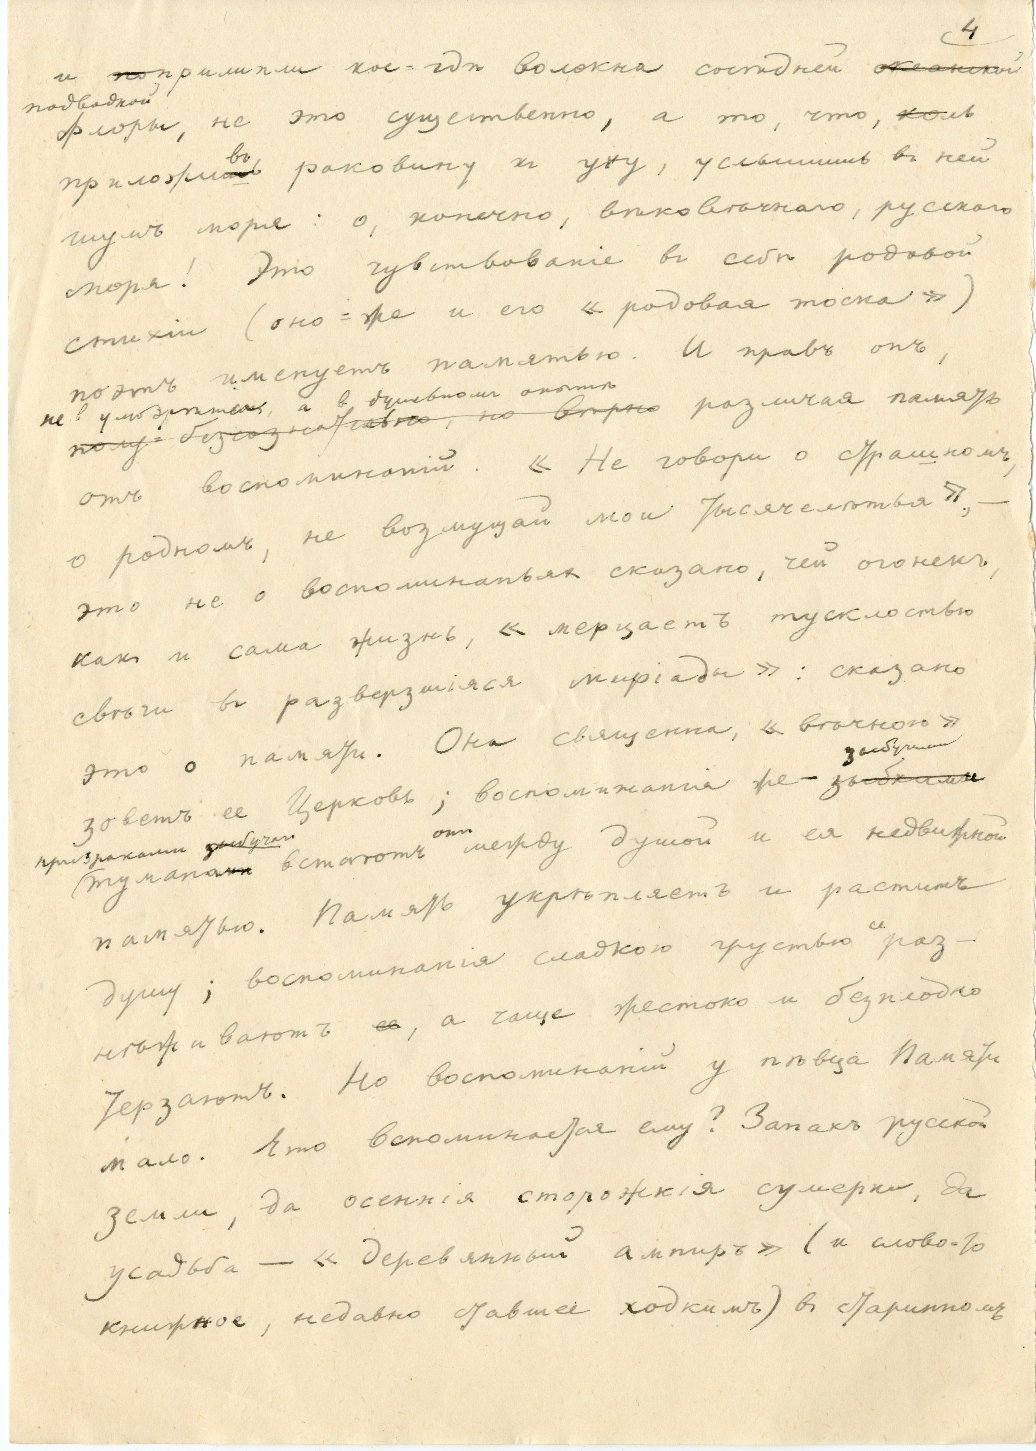 4
и попримипли кое-гдѣ волокна сосѣдней океанской
подводной
флоры, не это существенно, а то, что, коль
приложивъ раковину къ уху, услышишь въ ней
шумъ моря: о, конечно, вѣковѣчнаго, русскаго
моря! Это чувствованіе въ себѣ родовой
стихіи (оно-же и его « родовая тоска »)
поэтъ именуетъ памятью. И правъ онъ,
не въ умозрѣніи, а в душевномъ опытѣ
полу-безсознательно, но вѣрно различая память
отъ воспоминаній. « Не говори о страшномъ,
о родномъ, не возмущай мои тысячелѣтья », —
это не о воспоминаньях сказано, чей огонекъ,
какъ и сама жизнь, « мерцаетъ тусклостью
свѣчи въ разверзшіяся миріады »: сказано
это о памяти. Она священна, « вѣчною »
зыбучими
зоветъ ее Церковь; воспоминанія же — зыбкими
призраками зыбучаго
тумана встаютъ они между душой и ея недвижной
памятью. Память укрѣпляетъ и раститъ
душу; воспоминанія сладкою грустью ее раз-
нѣживаютъ ее, а чаще жестоко и безплодно
терзаютъ. Но воспоминаній у пѣвца Памяти
мало. Что вспоминается ему? Запахъ русской
земли, да осеннія сторожкія сумерки, да
усадьба — « деревянный ампиръ » (и слово-то
книжное, недавно ставшее ходкимъ) въ старинномъ